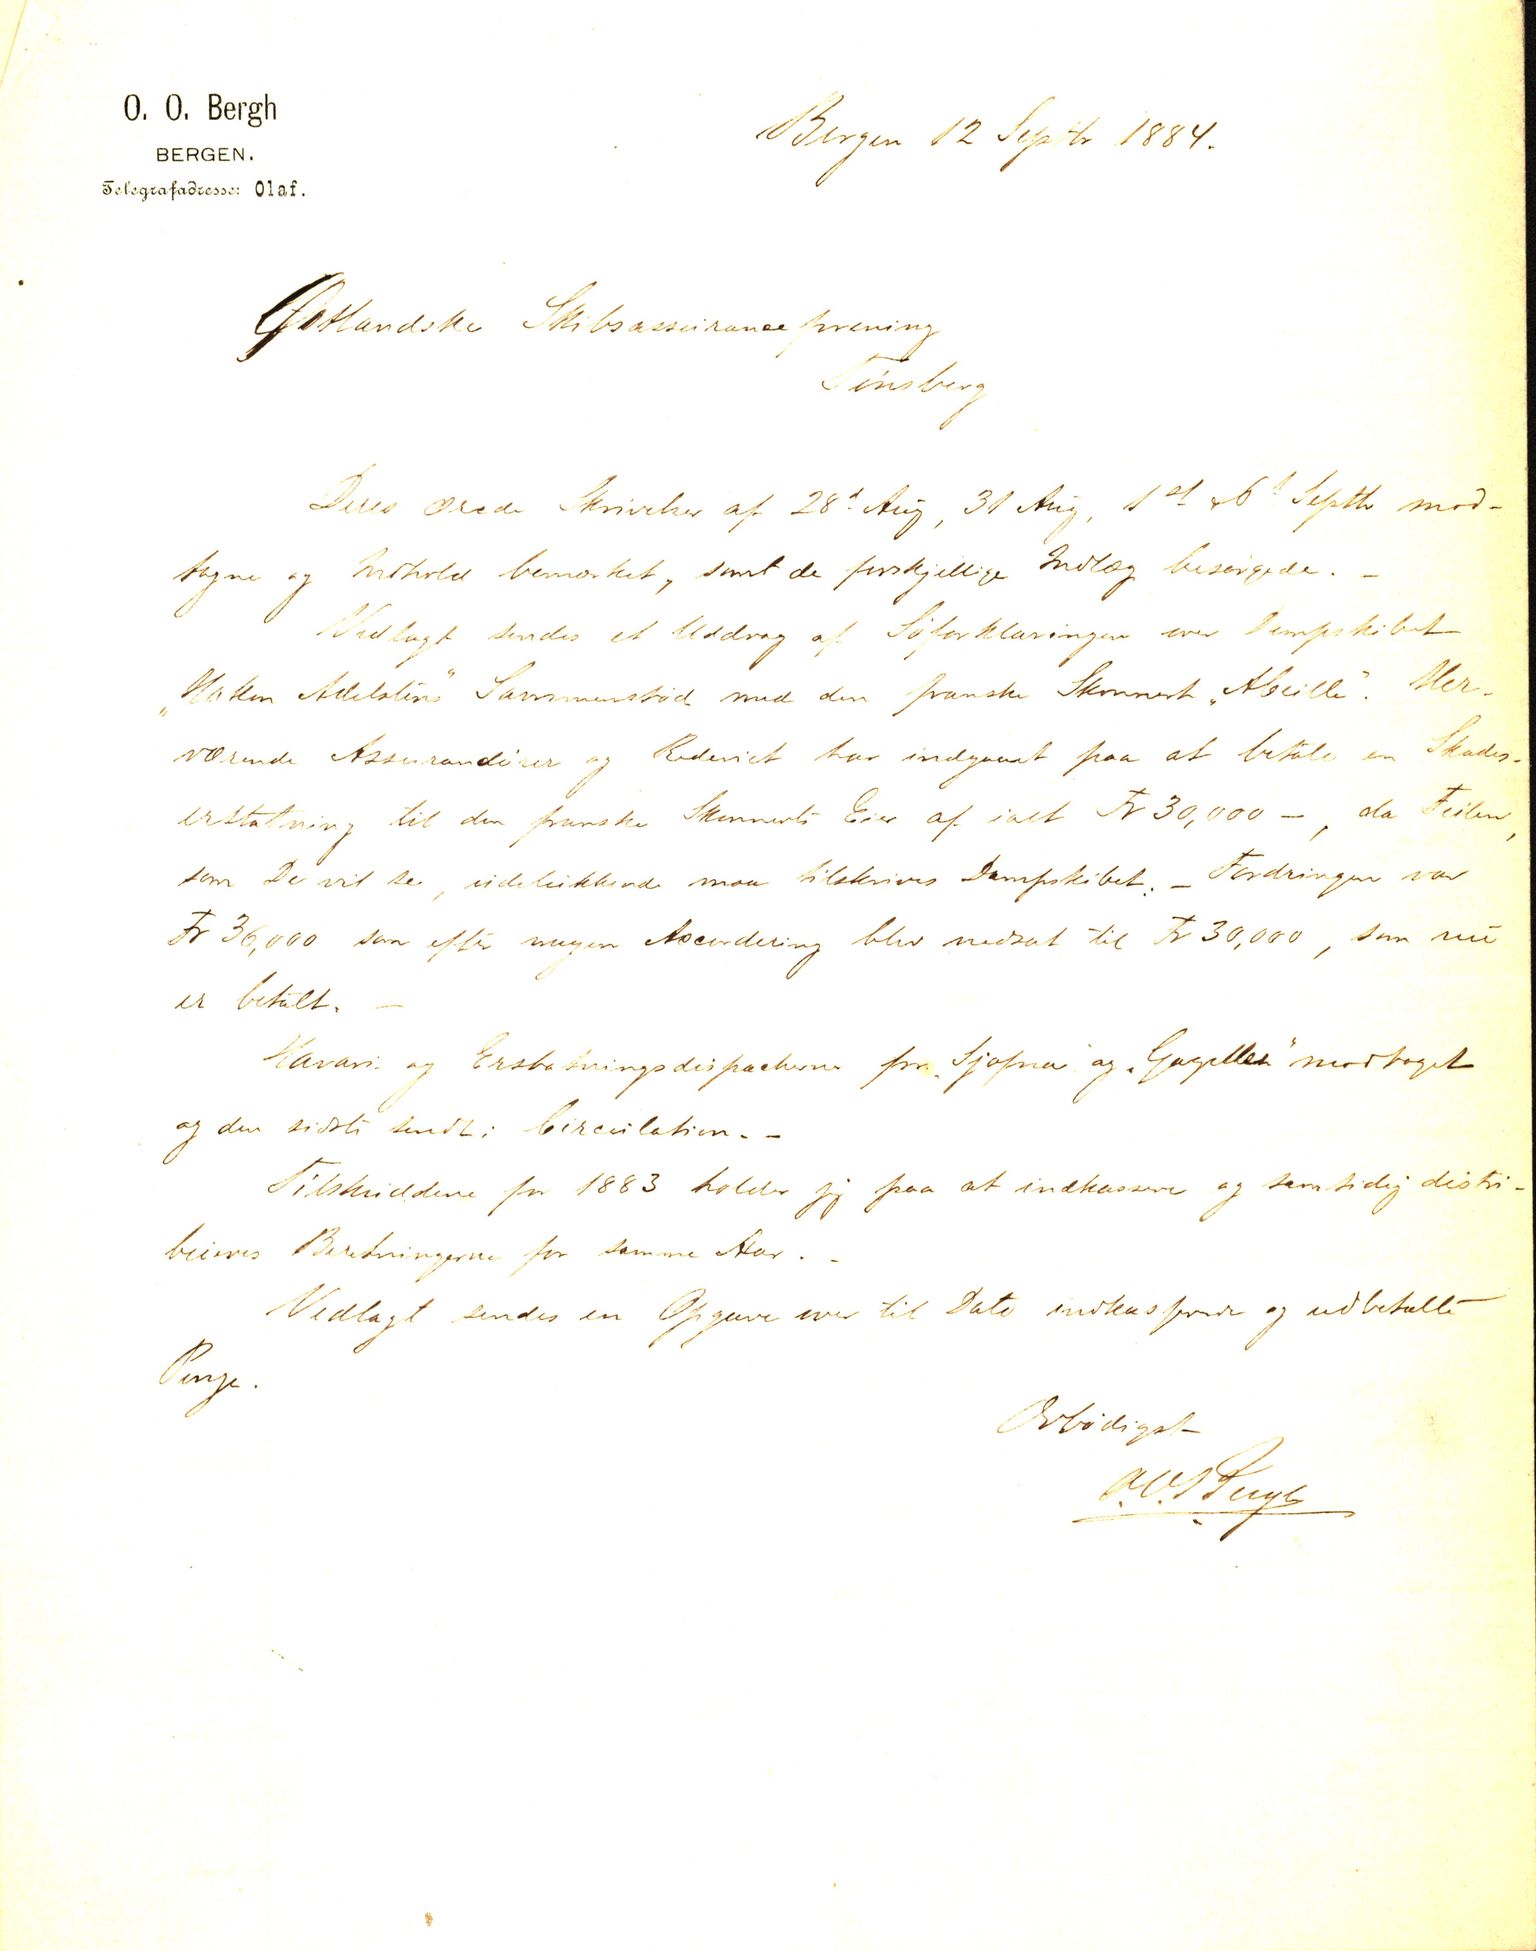 O. O. Bergh
BERGEN.
Telegrafadresse: Olaf.
Bergen 12 Septbr 1884.
Østlandske Skibsassuranceforening
Tønsberg
Deres ærede Skrivelser af 28d Aug, 31 Aug, 1st & 6t Septbr mod-
tagne og Indhold bemærket, samt de forskjellige Indlæg besørgede. -
Vedlagt sendes et Uddrag af Søforklaringen over Dampskibet
„Hakon Adelstens" Sammenstød med den franske Skonnert „Abeille". Her-
værende Assurandører og Rederiet har indgaaet paa at betale en Skades-
erstatning til den franske Skonnerts Eier af ialt Fr 30,000 -, da Feilen,
som De vil se, udelukkende maa tilskrives Dampskibet. - Fordringen var
Fr 36,000 som efter megen Accordering blev nedsat til Fr 30,000, som nu
er betalt. -
Havari og Erstatningsdispacherne for „Sjofna" og „Gazellen" modtaget
og den sidste sendt i Circulation. -
Tilskuddene for 1883 holder jeg paa at indkassere og samtidig distri-
bueres Beretningerne for samme Aar. -
Vedlagt sendes en Opgave over til Dato indkasserede og udbetalte
Penge.
Ærbødigst
O. O. Bergh